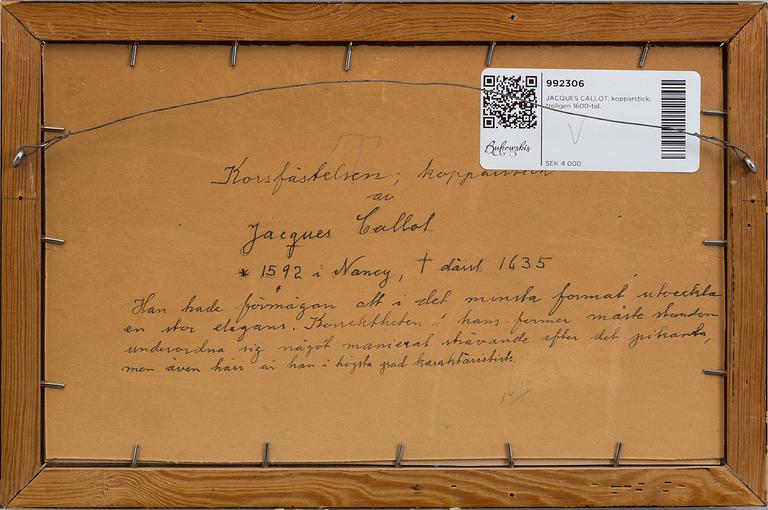 992306
JACQUES CALLOT, kopparstick,
troligen 1600-tal.
Bukowskis
SEK 4 000
Korsfästelsen, kopparstick
av
Jacques Callot
* 1592 i Nancy, † därst 1635
Han hade förmågan att i det minsta format utveckla
en stor elegans. Korrektheten i hans former måste stundom
underordna sig något manierat strävande efter det pikanta,
men även häri är han i högsta grad karaktäristisk.